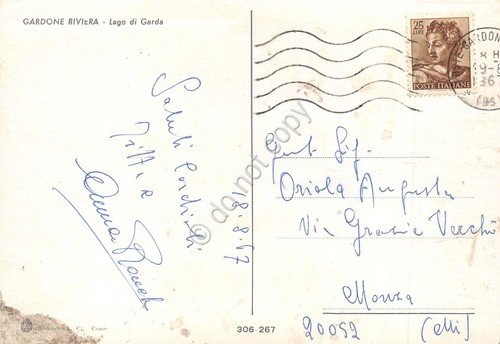 GARDONE RIVIERA - Lago di Garda
25
LIRE
POSTE ITALIANE
GARDON
19-8
Saluti Cordiali
18.8.67
Anna
Gent. Sig.
Oriola Augusta
Via Grazie Vecchie
Monza
20052 (Mi)
306-267
do not copy